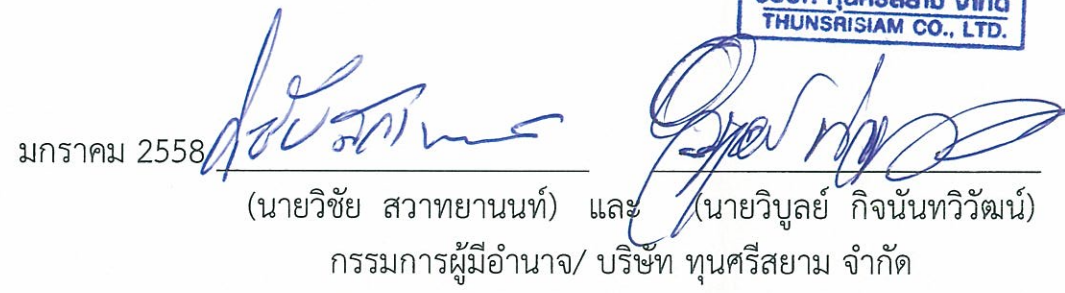 บริษัท ทุนศรีสยาม จำกัด
THUNSRISIAM CO., LTD.
มกราคม 2558
(นายวิชัย สวาทยานนท์) และ (นายวิบูลย์ กิจนันทวิวัฒน์)
กรรมการผู้มีอำนาจ/ บริษัท ทุนศรีสยาม จำกัด